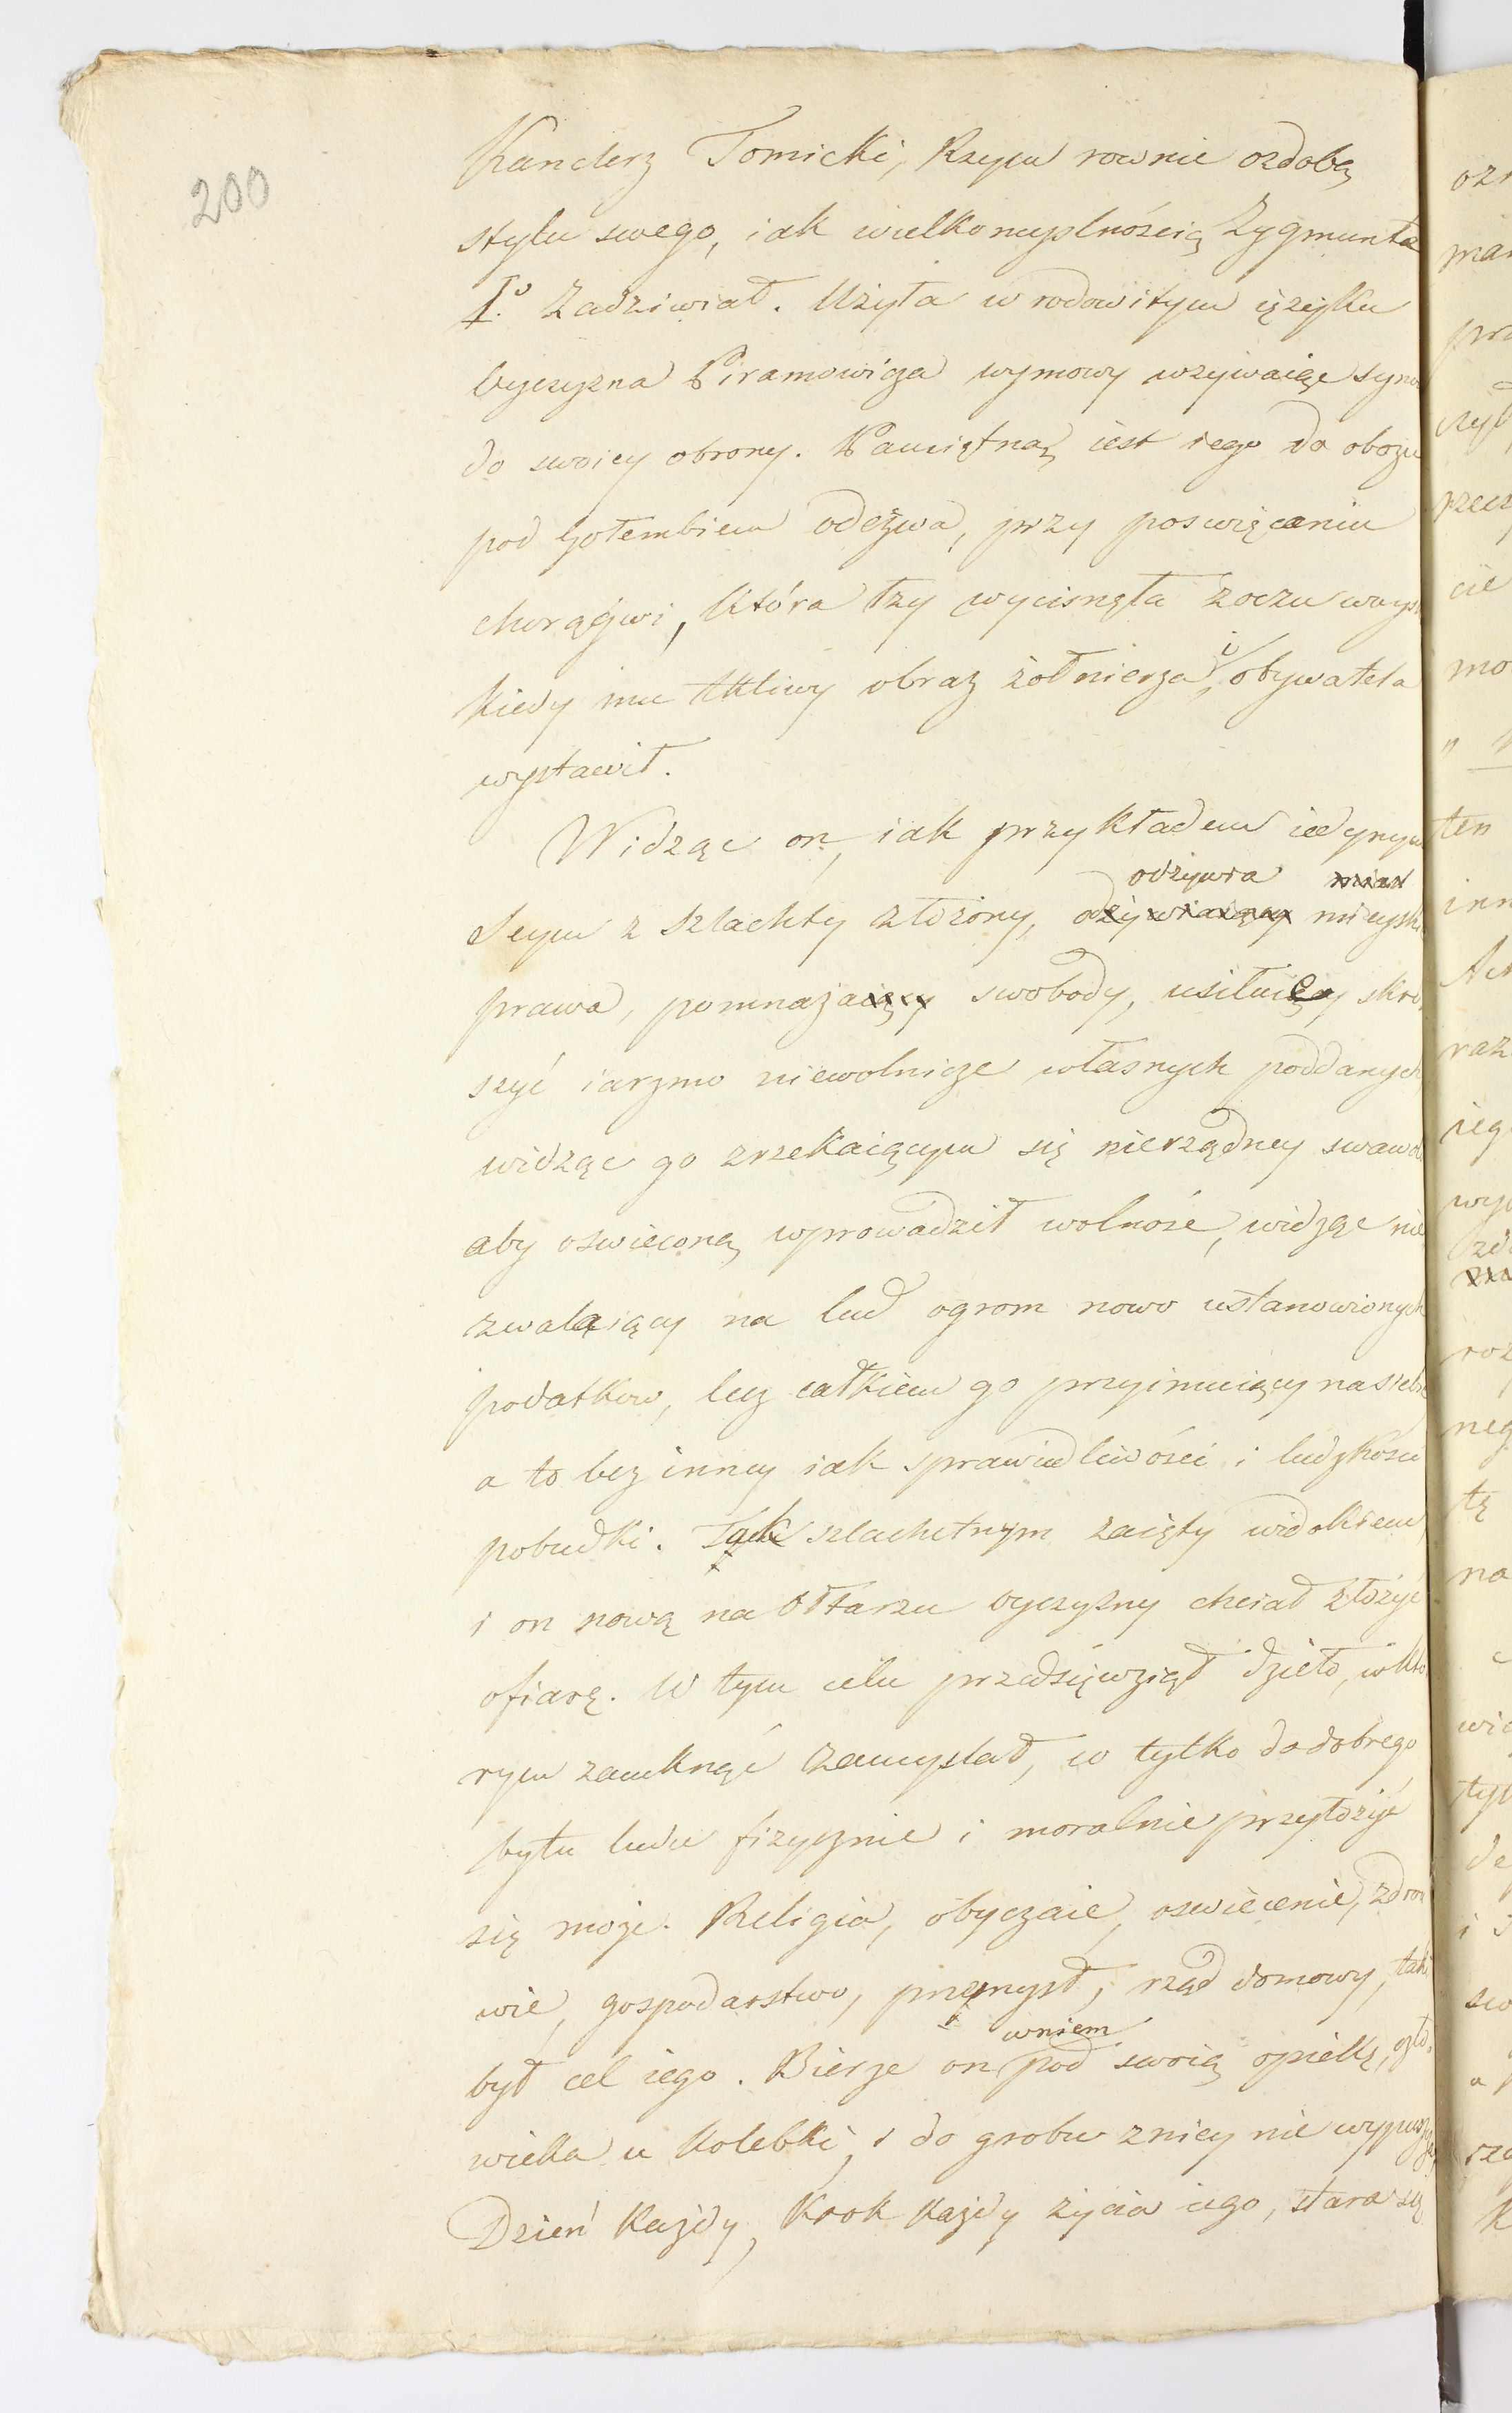 200
Kanclerz Tomicki, Rzym rownie ozdobą
stylu swego, iak wielkomyslnością Zygmunta
I.o zadziwiał. Użyła w rodowitym ięzyku
Oyczyzna Piramowicza wymowy wzywaiąc syno
do swoiey obrony. Pamiętną iest iego do obozu
pod Gołembiem odezwa, przy poswięceniu
chorągwi, która łzy wycisnęła z oczu wszys
kiedy mu tkliwy obraz żołnierza i obywatela
wystawił.
Widząc on, iak przykładem iedynym
odżywia
Seym z szlachty złożony, odżywiaiący mieysk
prawa, pomnażaiący swobody, usiłuie skru
szyć iarzmo niewolnicze własnych poddanych
widząc go zrzekaiącym się nierządney swawol
aby oswieconą wprowadził wolność, widząc nie
zwalaiący na lud ogrom nowo ustanowionych
podatkow, lecz całkiem go przyimuiący na siebie
a to bez inney iak sprawiedliwości i ludzkości
pobudki. Tak szlachetnym zaięty widokiem,
i on nową na ołtarzu oyczyzny chciał złożyć
ofiarę. W tym celu przedsięwziął dzieło, w któ
rym zamknąć zamyslał, co tylko do dobrego
bytu ludu fizycznie i moralnie przyłożyć
się może. Religia, obyczaie, oswiecenie, zdro
wie, gospodarstwo, przemysł, rząd domowy, taki
był cel iego. Bierze on wniem pod swoią opiekę, czło-
wieka u kolebki, i do grobu z niey nie wypuszcza
Dzień każdy, krok każdy życia iego, stara się